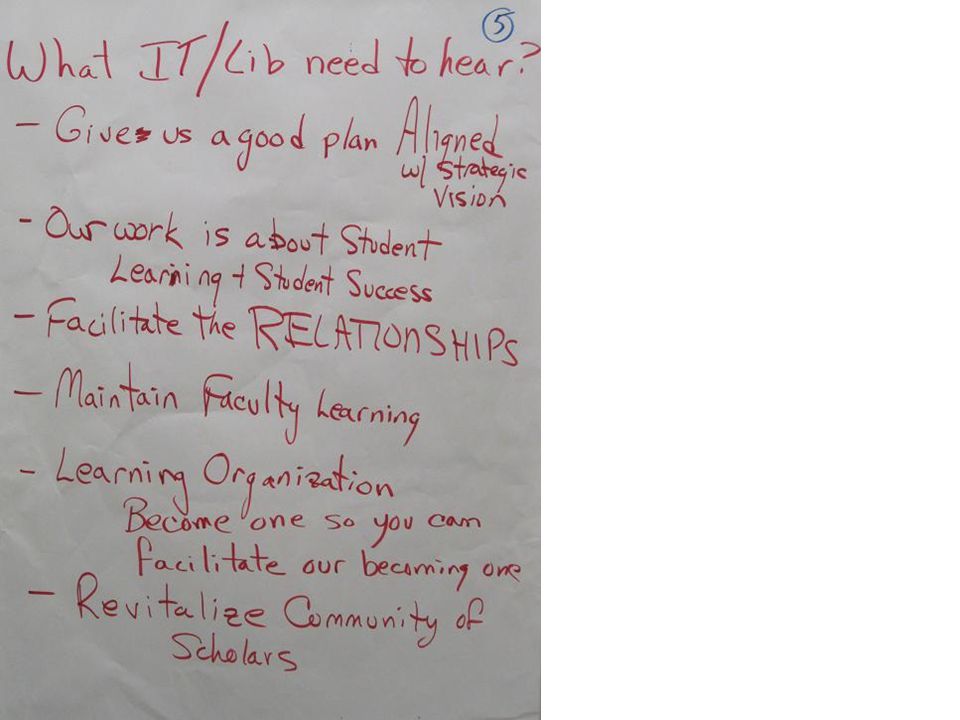 5
What IT/Lib need to hear?
- Give us a good plan Aligned
w/ Strategic
Vision
- Our work is about Student
Learning + Student Success
- Facilitate the RELATIONSHIPS
- Maintain Faculty Learning
- Learning Organization
Become one so you can
facilitate our becoming one
- Revitalize Community of
Scholars